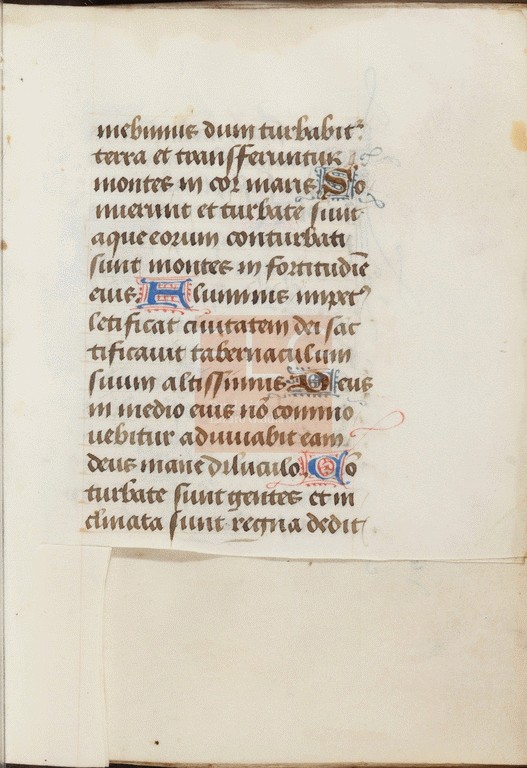 mebimus dum turbabitʳ
terra et transfferuntur
montes in cor maris So
nuerunt et turbate sunt
aque eorum conturbati
sunt montes in fortitudīe
eius Fluminis impetꝰ
letificat ciuitatem dei sac
tificauit tabernaculum
suum altissimus Deus
in medio eius nō commo
uebitur adiuuabit eam
deus mane diluculo Co
turbate sunt gentes et in
clinata sunt regna dedit